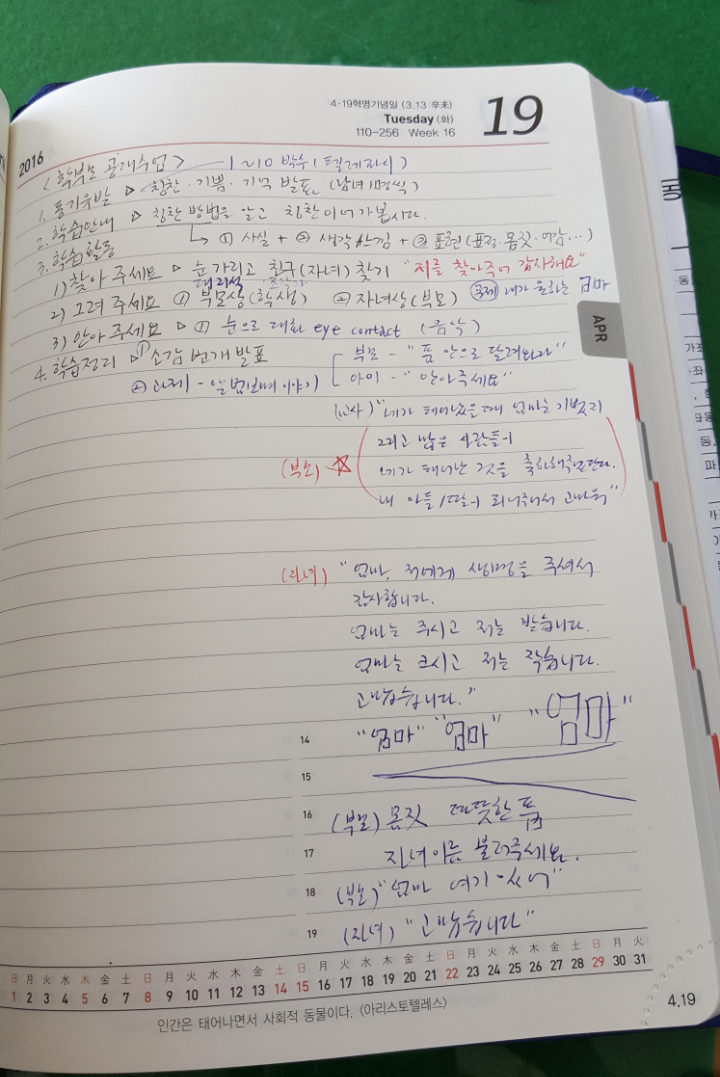 4·19혁명기념일 (3.13 辛未)
Tuesday (화)
110-256 Week 16
19
2016
<학부모 공개수업> 1~10 박수 (텔레파시)
1. 동기유발 ▷ 칭찬·기쁨·기억 발표 (남녀 1명씩)
2. 학습안내 ▷ 칭찬 방법을 알고 칭찬이어가봅시다.
3. 학습활동 ↳ ① 사실 + ② 생각 느낌 + ③ 표현 (표정·몸짓·마감...)
1) 찾아 주세요 ▷ 눈 가리고 친구(자녀) 찾기 "저를 찾아주어 감사해요"
대리석 조각가
2) 그려 주세요 ① 부모상(학생) ② 자녀상(부모) 주제 내가 원하는 엄마
3) 안아 주세요 ▷ ① 눈으로 대화 eye contact (음악)
4. 학습정리 ▷ ① 소감 번개 발표 부모 - "품 안으로 달려와라"
② 과제 - 이야기 아이 - "안아주세요"
(교사) "네가 태어났을 때 엄마는 기뻤지
그리고 많은 사람들이
(부모) ☆ 네가 태어난 것을 축하해주었단다.
내 아들/딸이 되어주어서 고마워"
(자녀) "엄마, 저에게 생명을 주셔서
감사합니다.
엄마는 주시고 저는 받습니다.
엄마는 크시고 저는 작습니다.
고맙습니다."
14 "엄마" "엄마" "엄마"
15
16 (부모) 몸짓 따뜻한 품
17 자녀이름 불러주세요.
18 (부모) "엄마 여기 있어"
19 (자녀) "고맙습니다"
APR
日 月 火 水 木 金 土 日 月 火 水 木 金 土 日 月 火 水 木 金 土 日 月 火 水 木 金 土 日 月 火
1 2 3 4 5 6 7 8 9 10 11 12 13 14 15 16 17 18 19 20 21 22 23 24 25 26 27 28 29 30 31
인간은 태어나면서 사회적 동물이다. <아리스토텔레스>
4.19